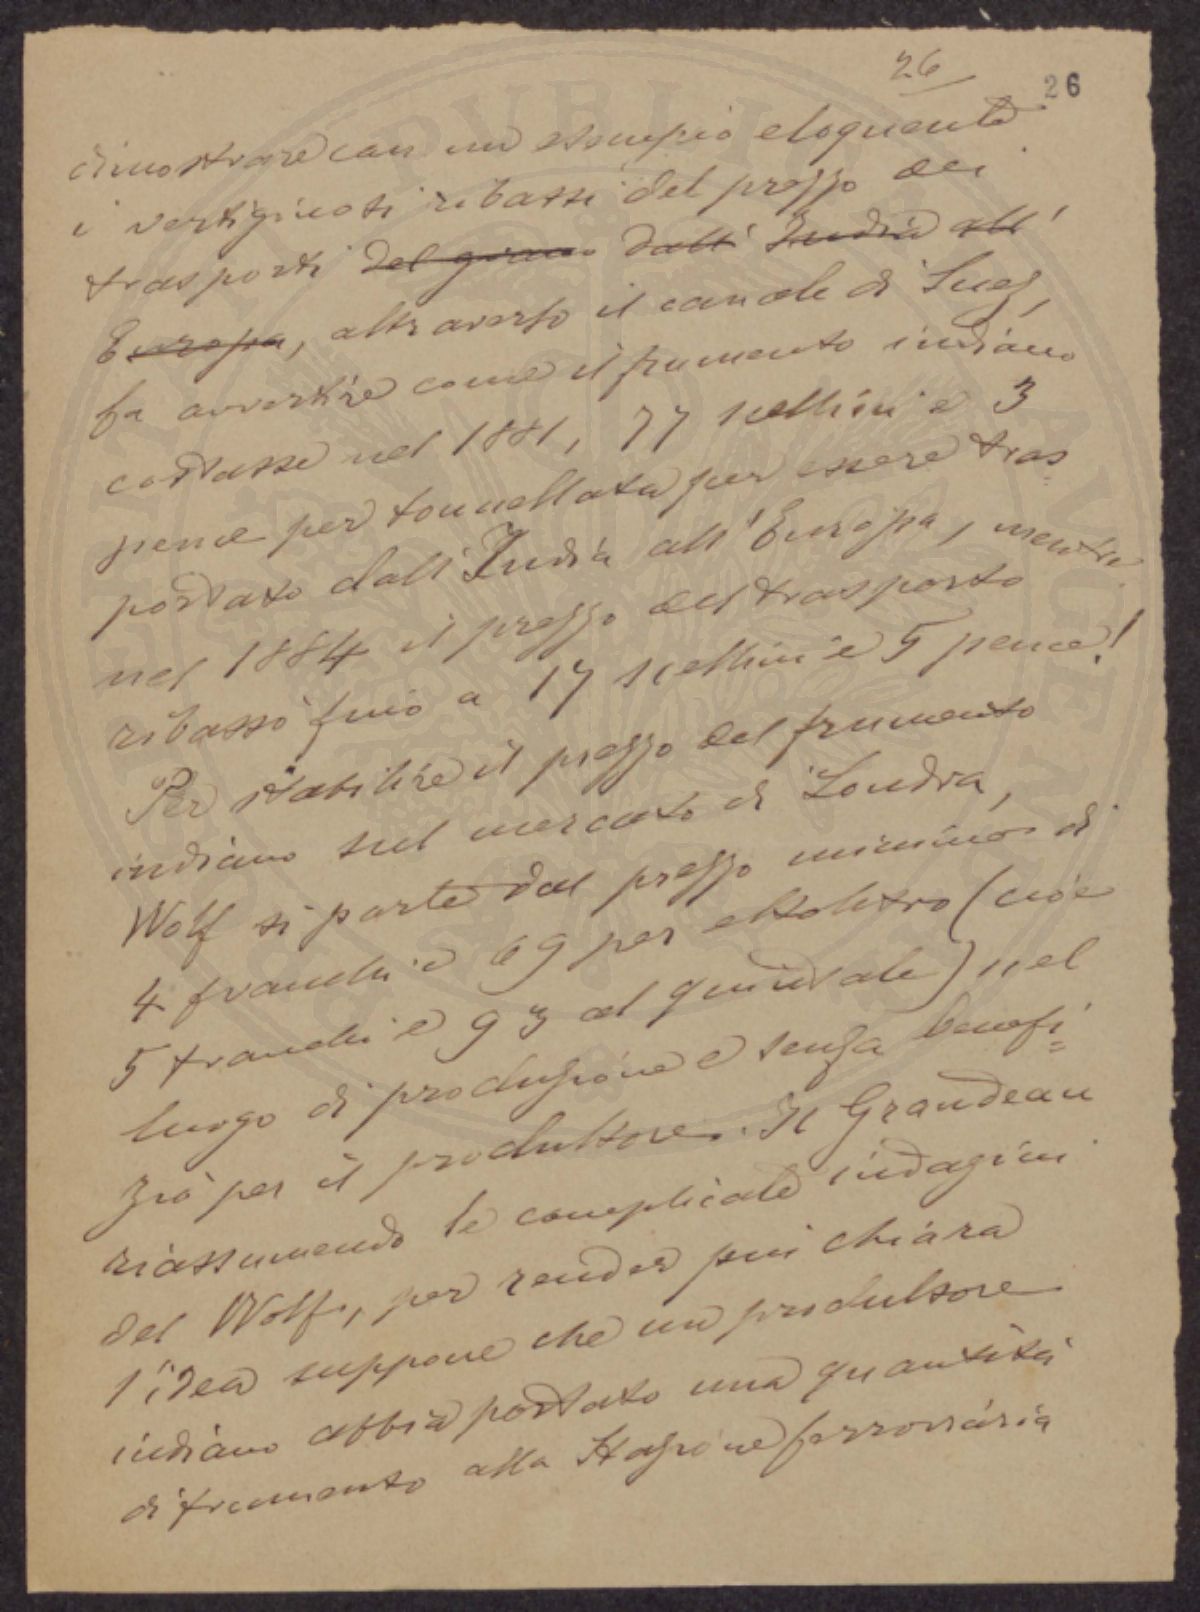 26
26
dimostrare con un esempio eloquente
i vertiginosi ribassi del prezzo dei
trasporti del grano dall' India all'
Europa, attraverso il canale di Suez,
fa avvertire come il frumento indiano
costasse nel 1881, 77 scellini e 3
pence per tonnellata per essere tras=
portato dall'India all'Europa, mentre
nel 1884 il prezzo del trasporto
ribassò fino a 17 scellini e 5 pence!
Per stabilire il prezzo del frumento
indiano sul mercato di Londra,
Wolf si parte dal prezzo minimo di
4 franchi e 69 per ettolitro (cioè
5 franchi e 93 al quintale) nel
luogo di produzione e senza benefi=
zio per il produttore. Il Grandeau
riassumendo le complicate indagini
del Wolf, per render più chiara
l'idea suppone che un produttore
indiano abbia portato una quantità
di frumento alla Stazione ferroviaria